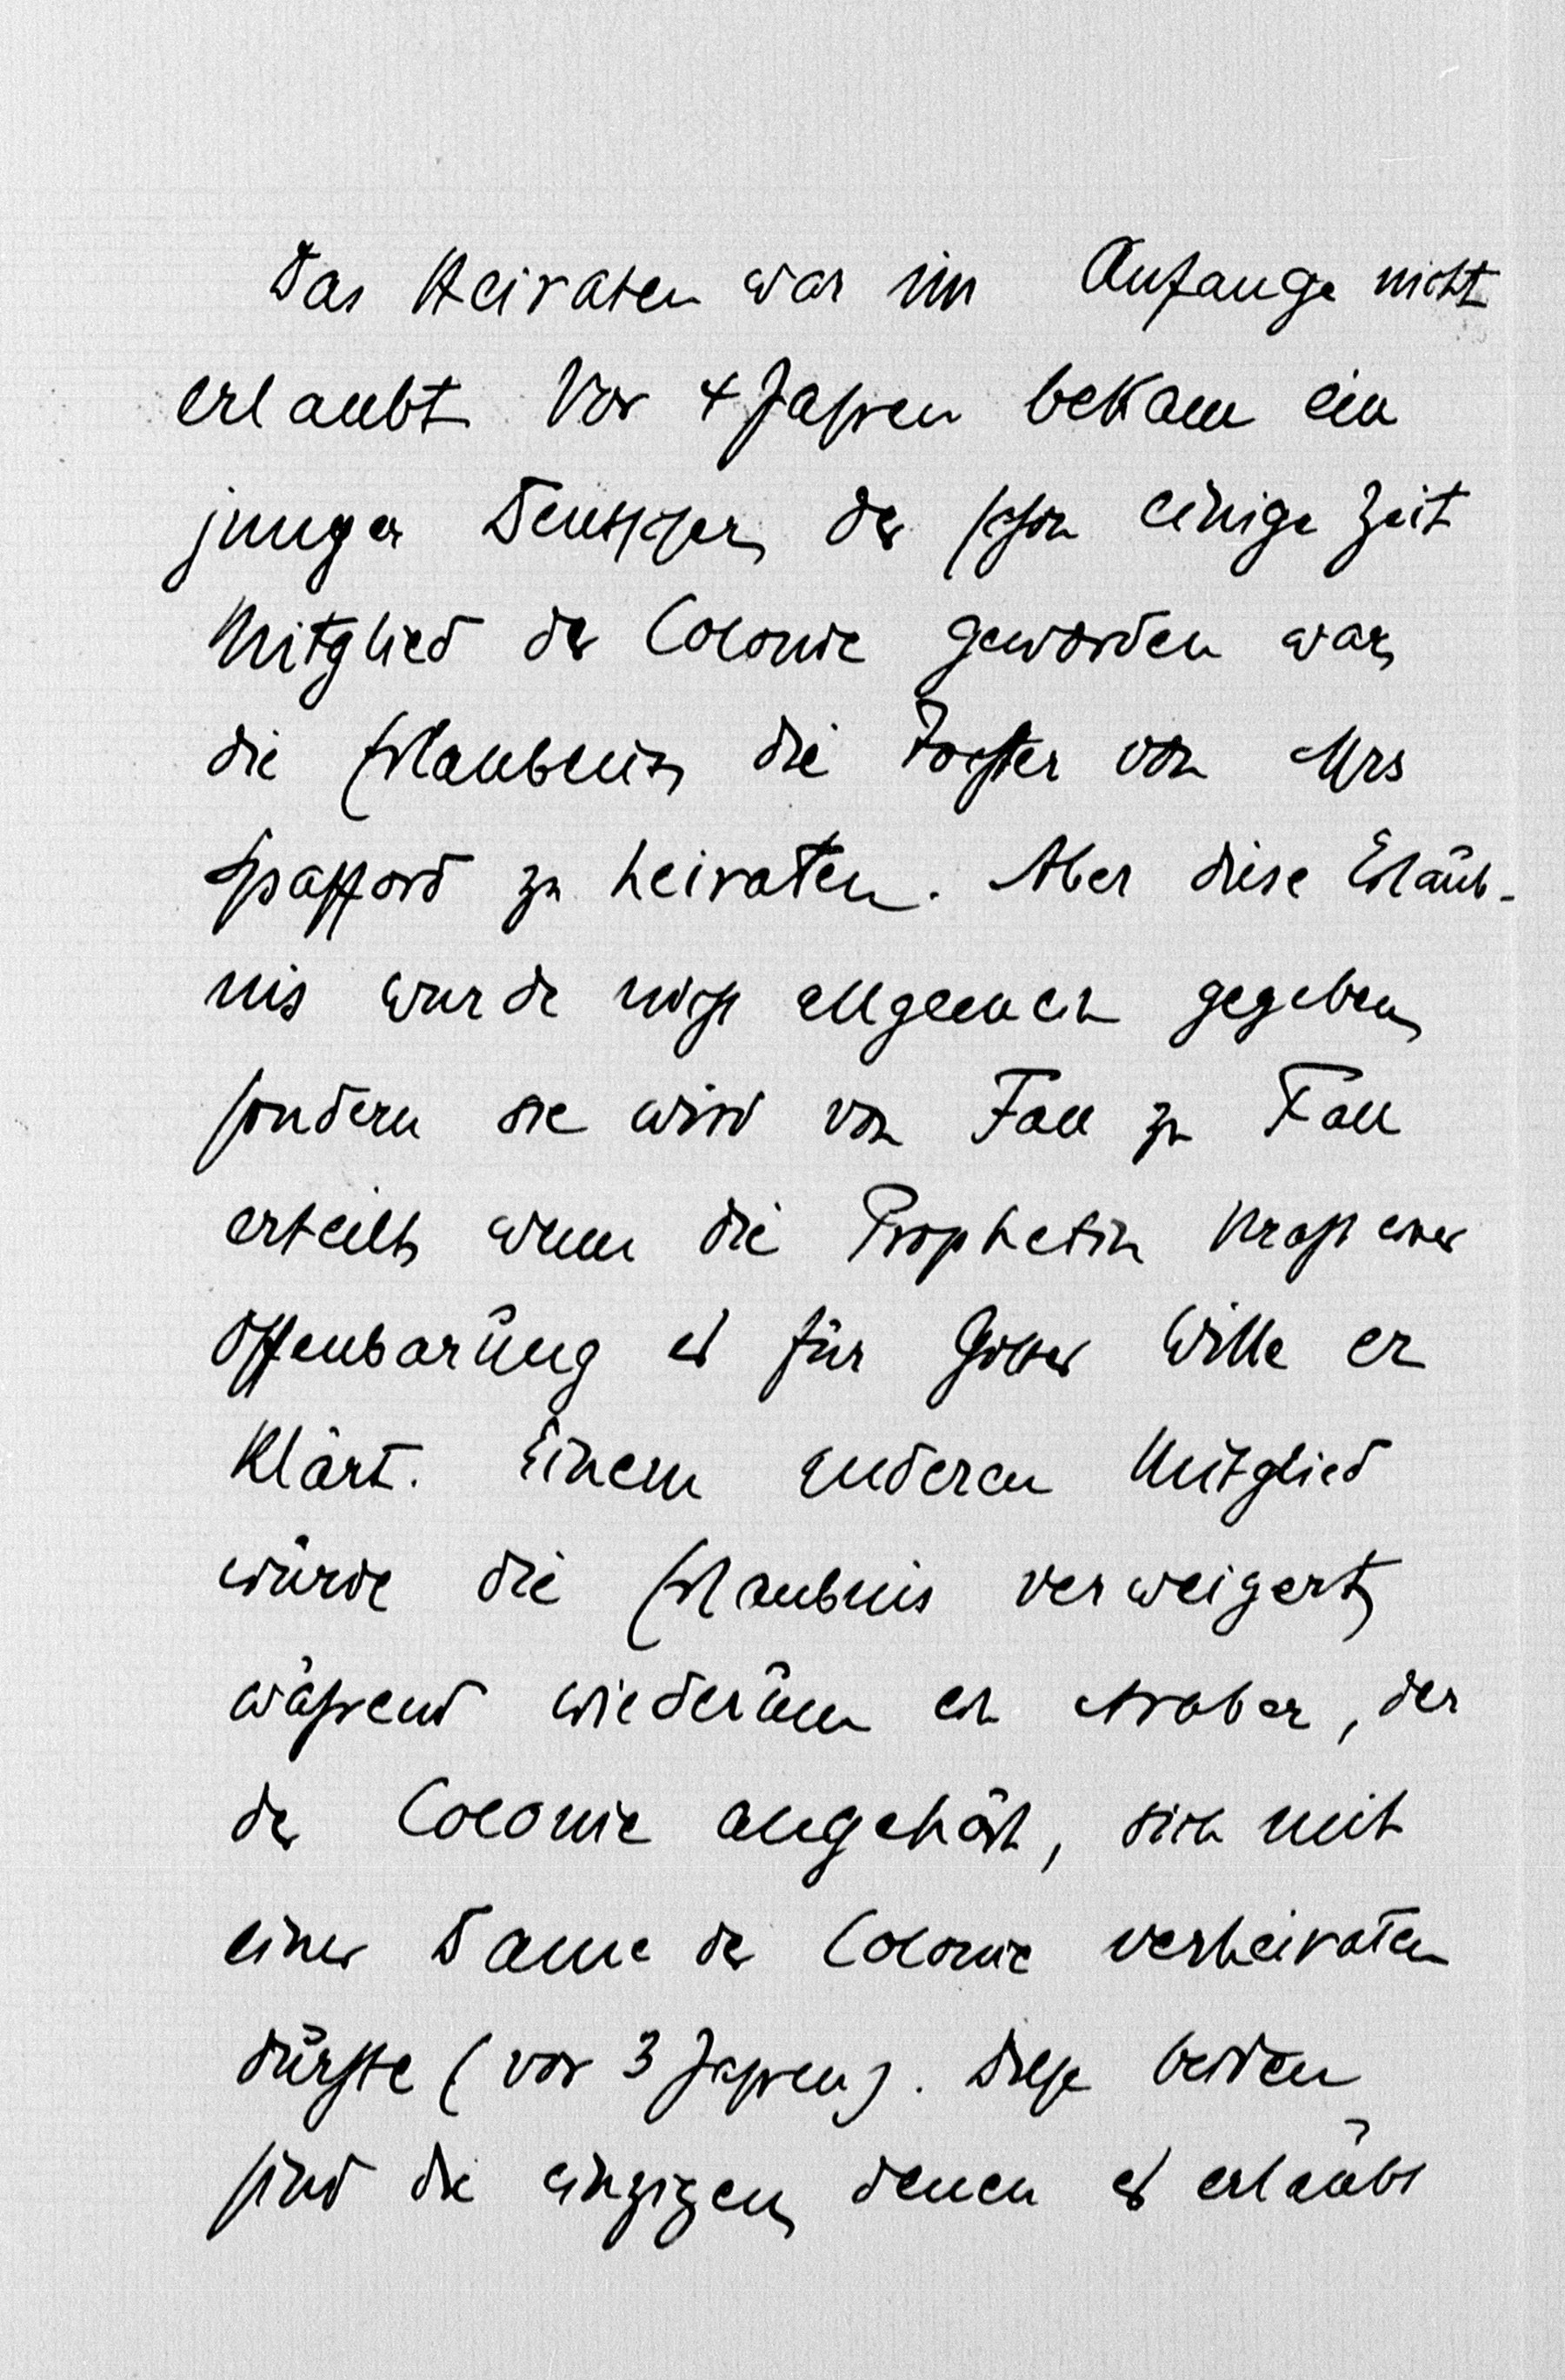 Das Heiraten war im Anfange nicht
erlaubt. Vor 4 Jahren bekam ein
junger Deutscher, der schon einige Zeit
Mitglied der Colonie geworden war,
die Erlaubnis, die Tochter von Mrs
Spafford zu heiraten. Aber diese Erlaub-
nis wurde nicht allgemein gegeben,
sondern sie wird von Fall zu Fall
erteilt, wenn die Prophetin kraft einer
Offenbarung es für Gottes Wille er
klärt. Einem anderen Mitglied
wurde die Erlaubnis verweigert,
während wiederum ein Araber, der
der Colonie angehört, sich mit
einer Dame der Colonie verheiraten
dürfte (vor 3 Jahren). Diese beiden
sind die einzigen, denen es erlaubt